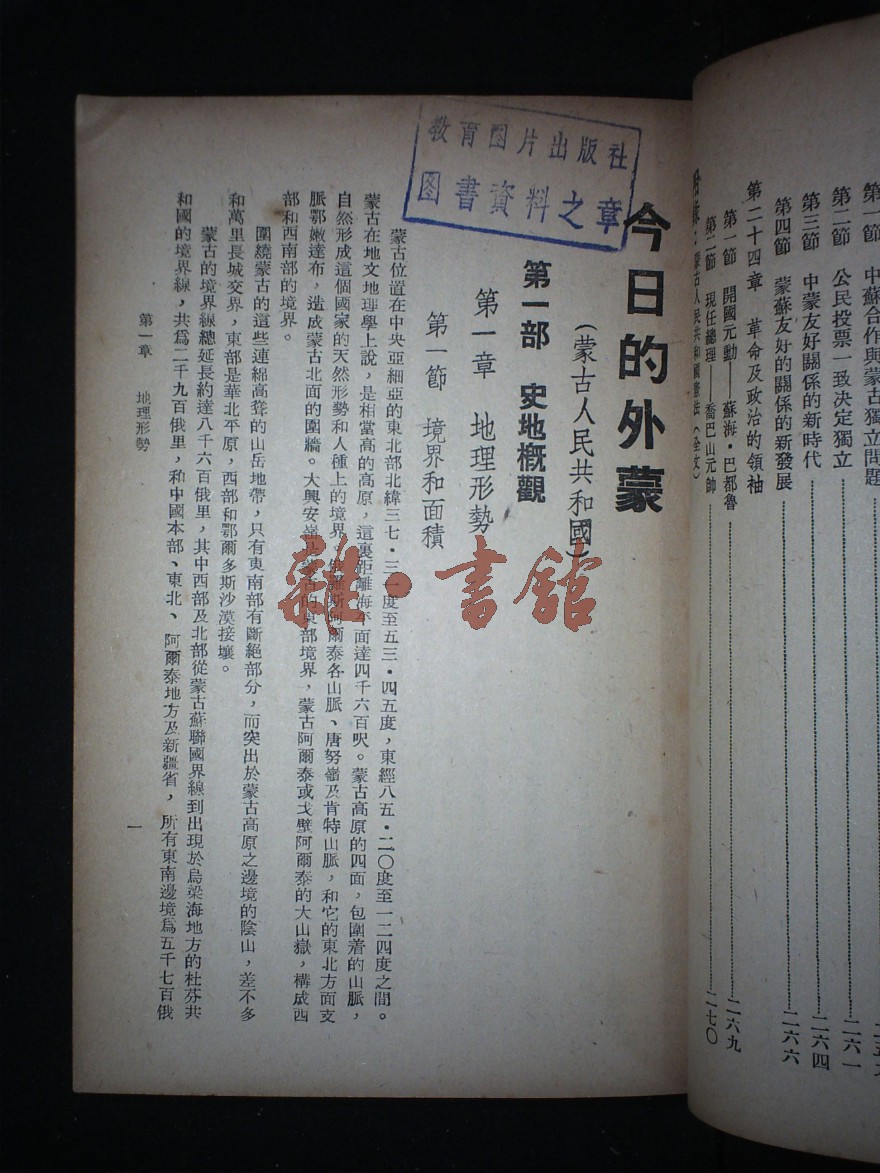 第一節　中蘇合作與蒙古獨立問題
第二節　公民投票一致決定獨立……二六一
第三節　中蒙友好關係的新時代……二六四
第四節　蒙蘇友好的關係的新發展……二六六
第二十四章　革命及政治的領袖
第一節　開國元勳——蘇海・巴都魯……二六九
第二節　現任總理——喬巴山元帥……二七〇
蒙古人民共和國憲法（全文）
教育图片出版社
图書資料之章
今日的外蒙
（蒙古人民共和國）
第一部　史地概觀
第一章　地理形勢
第一節　境界和面積
蒙古位置在中央亞細亞的東北部北緯三七・三一度至五三・四五度，東經八五・二〇度至一二四度之間。
蒙古在地文地理學上說，是相當高的高原，這裏距離海平面達四千六百呎。蒙古高原的四面，包圍着的山脈，
自然形成這個國家的天然形勢和人種上的境界，阿爾泰各山脈、唐努嶺及肯特山脈，和它的東北方面支
脈鄂嫩達布，造成蒙古北面的圍牆。大興安嶺是蒙古的東部境界，蒙古阿爾泰或戈壁阿爾泰的大山嶽，構成西
部和西南部的境界。
圍繞蒙古的這些連綿高聳的山岳地帶，只有東南部有斷絕部分，而突出於蒙古高原之邊境的陰山，差不多
和萬里長城交界，東部是華北平原，西部和鄂爾多斯沙漠接壤。
蒙古的境界線總延長約達八千六百俄里，其中西部及北部從蒙古蘇聯國界線到出現於烏梁海地方的杜芬共
和國的境界線，共爲二千九百俄里，和中國本部、東北、阿爾泰地方及新疆省，所有東南邊境爲五千七百俄
第一章　地理形勢
一
雜・書館